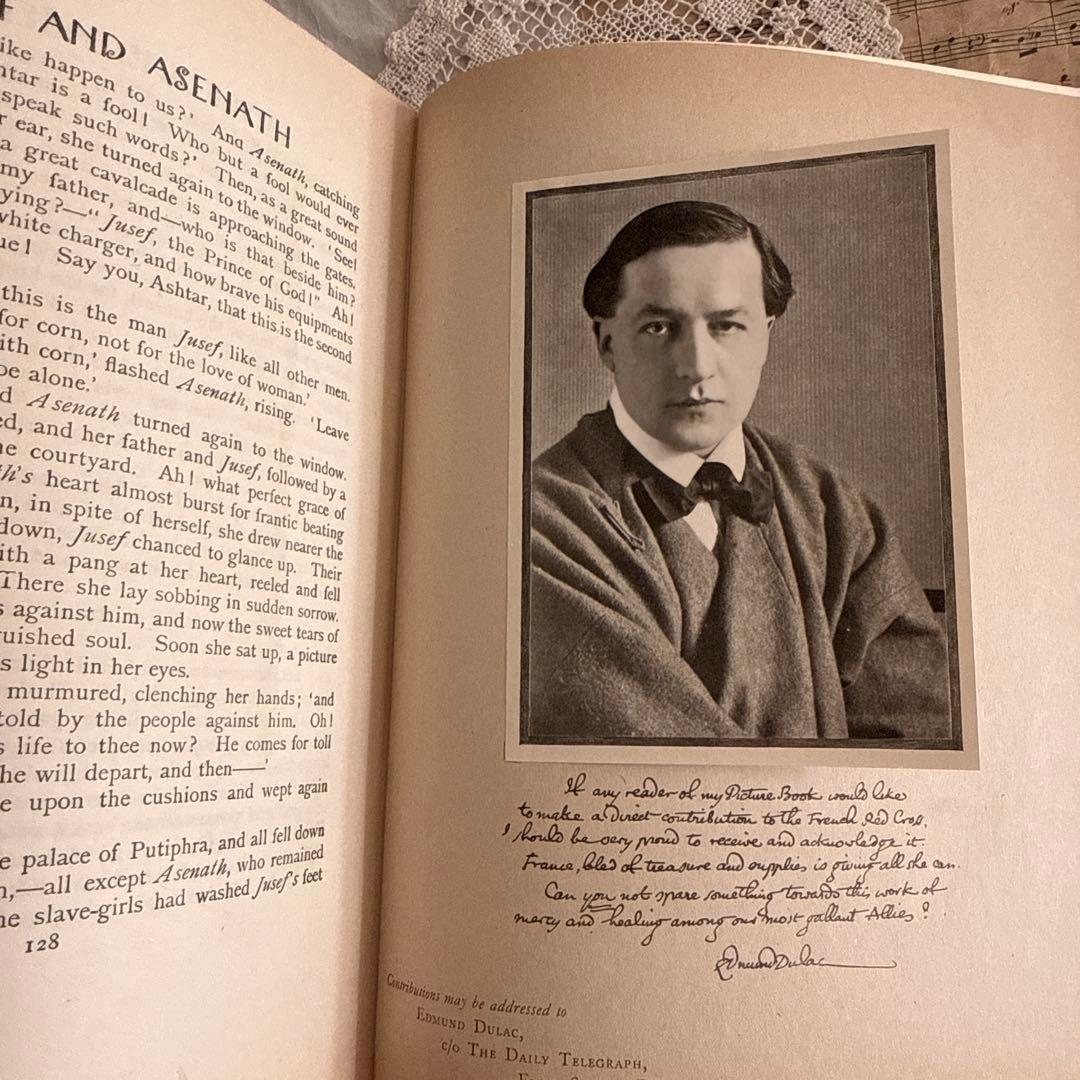 AND ASENATH
ike happen to us?' And Asenath, catching
htar is a fool! Who but a fool would ever
speak such words?' Then, as a great sound
r ear, she turned again to the window. 'See!
a great cavalcade is approaching the gates.
my father, and—who is that beside him?
ying?—"Jusef, the Prince of God!" Ah!
white charger, and how brave his equipments
ue! Say you, Ashtar, that this is the second
this is the man Jusef, like all other men.
for corn, not for the love of woman.'
ith corn,' flashed Asenath, rising. 'Leave
be alone.'
d Asenath turned again to the window.
ed, and her father and Jusef, followed by a
he courtyard. Ah! what perfect grace of
th's heart almost burst for frantic beating
n, in spite of herself, she drew nearer the
down, Jusef chanced to glance up. Their
ith a pang at her heart, reeled and fell
There she lay sobbing in sudden sorrow.
s against him, and now the sweet tears of
uished soul. Soon she sat up, a picture
s light in her eyes.
murmured, clenching her hands; 'and
told by the people against him. Oh!
s life to thee now? He comes for toll
he will depart, and then——'
e upon the cushions and wept again
e palace of Putiphra, and all fell down
n,—all except Asenath, who remained
he slave-girls had washed Jusef's feet
128
If any reader of my Picture Book would like
to make a direct contribution to the French Red Cross,
I should be very proud to receive and acknowledge it.
France, bled of treasure and supplies is giving all she can.
Can you not spare something towards this work of
mercy and healing among our most gallant Allies?
Edmund Dulac
Contributions may be addressed to
EDMUND DULAC,
c/o THE DAILY TELEGRAPH,